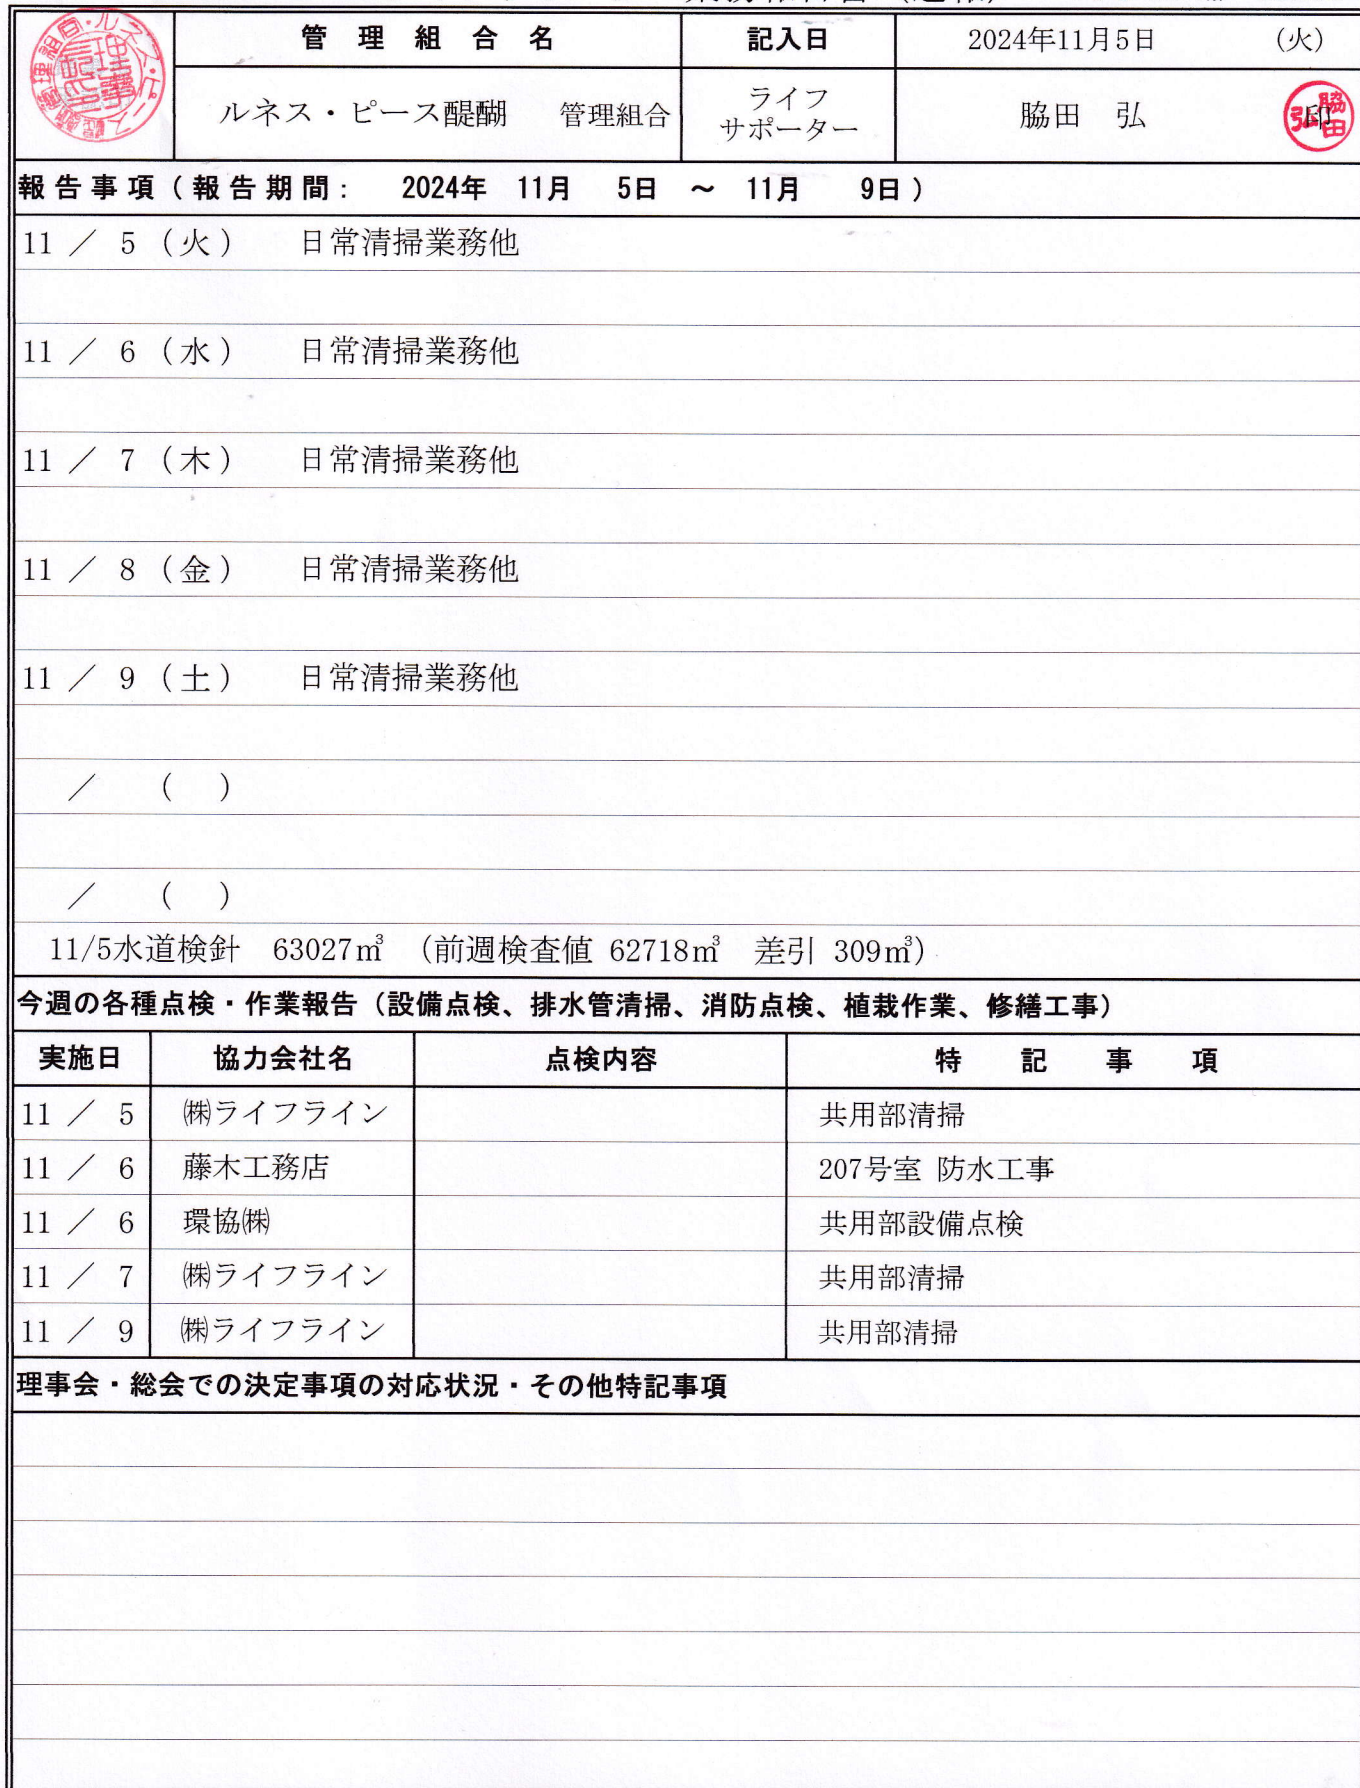 管理組合名 記入日 2024年11月5日 (火)
ルネス・ピース醍醐 管理組合 ライフ
サポーター 脇田 弘 印
報告事項(報告期間: 2024年 11月 5日 ~ 11月 9日)
11 / 5 (火) 日常清掃業務他
11 / 6 (水) 日常清掃業務他
11 / 7 (木) 日常清掃業務他
11 / 8 (金) 日常清掃業務他
11 / 9 (土) 日常清掃業務他
/ ( )
/ ( )
11/5水道検針 63027㎥ (前週検査値 62718㎥ 差引 309㎥)
今週の各種点検・作業報告(設備点検、排水管清掃、消防点検、植栽作業、修繕工事)
実施日 協力会社名 点検内容 特記事項
11 / 5 ㈱ライフライン 共用部清掃
11 / 6 藤木工務店 207号室 防水工事
11 / 6 環協㈱ 共用部設備点検
11 / 7 ㈱ライフライン 共用部清掃
11 / 9 ㈱ライフライン 共用部清掃
理事会・総会での決定事項の対応状況・その他特記事項